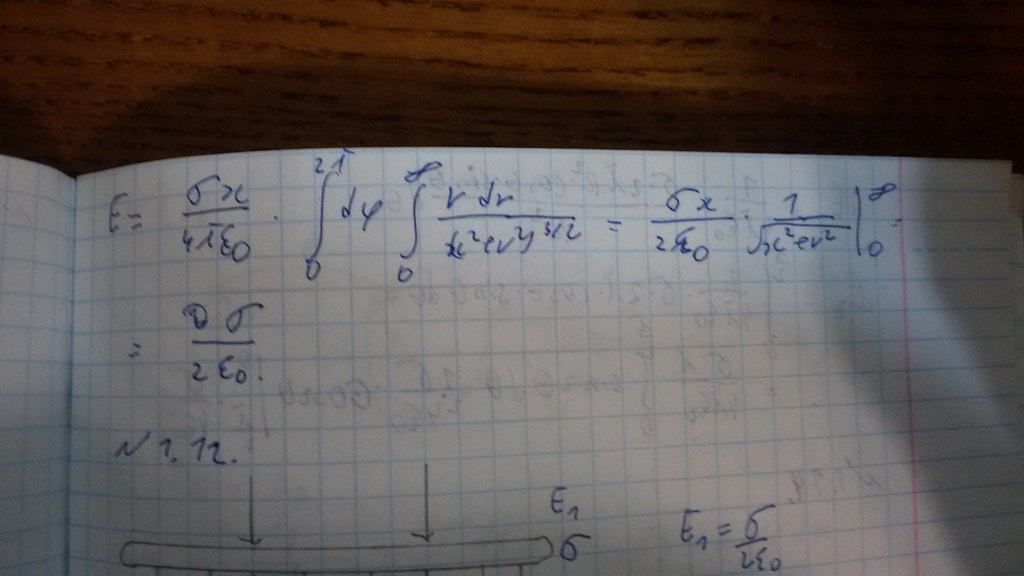 E = σx/4πε₀ · ∫₀^2π dφ ∫₀^∞ r dr/(x²+r²)^3/2 = σx/2ε₀ · 1/√x²+r² |₀^∞ =
= σ/2ε₀.
N 1.12.
E₁
σ
E₁ = σ/2ε₀